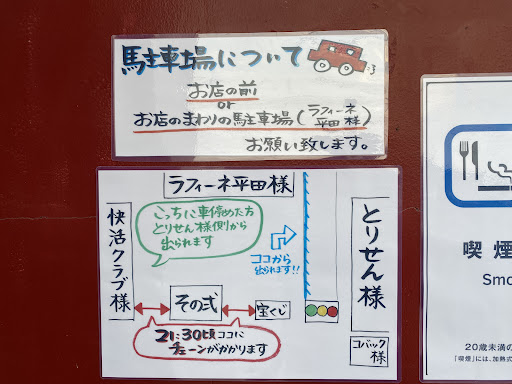 駐車場について
お店の前
or
お店のまわりの駐車場(ラフィーネ平田様)
お願い致します。
ラフィーネ平田様
快活クラブ様
こっちに車停めた方
とりせん様側から
出られます
ココから
出られます!!
とりせん様
その弐
宝くじ
21:30頃ココに
チェーンがかかります
コバック
様
喫煙
Smo
20歳未満の
「喫煙」には、加熱式